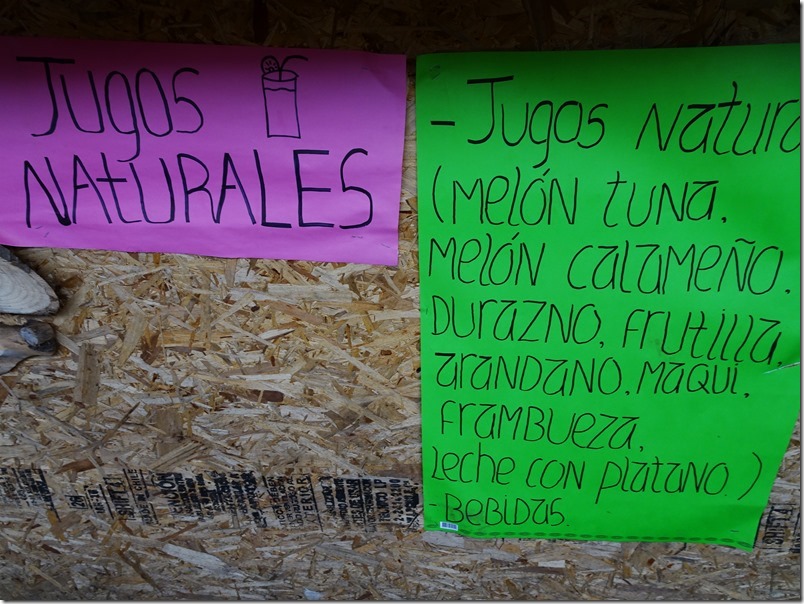 Jugos
NATURALES
- Jugos natura
(Melón tuna,
Melón calameño,
Durazno, frutilla,
arandano, Maqui,
frambueza,
Leche con platano.)
- Bebidas.